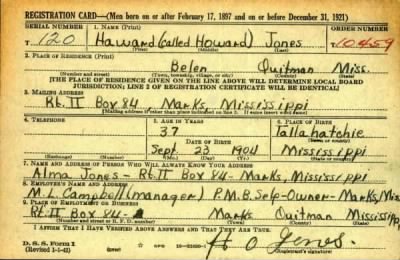 REGISTRATION CARD—(Men born on or after February 17, 1897 and on or before December 31, 1921)
SERIAL NUMBER 1. NAME (Print) ORDER NUMBER
T 120 Haward (called Howard) Jones T 10459
(First) (Middle) (Last)
2. PLACE OF RESIDENCE (Print)
Belen Quitman Miss.
(Number and street) (Town, township, village, or city) (County) (State)
[THE PLACE OF RESIDENCE GIVEN ON THE LINE ABOVE WILL DETERMINE LOCAL BOARD
JURISDICTION; LINE 2 OF REGISTRATION CERTIFICATE WILL BE IDENTICAL]
3. MAILING ADDRESS
Rt. II Box 84 Marks, Mississippi
[Mailing address if other than place indicated on line 2. If same insert word same]
4. TELEPHONE 5. AGE IN YEARS 6. PLACE OF BIRTH
37 Tallahatchie
DATE OF BIRTH (Town or county)
Sept 23 1904 Mississippi
(Exchange) (Number) (Mo.) (Day) (Yr.) (State or country)
7. NAME AND ADDRESS OF PERSON WHO WILL ALWAYS KNOW YOUR ADDRESS
Alma Jones - Rt. II Box 84 - Marks, Mississippi
8. EMPLOYER'S NAME AND ADDRESS
M. L. Campbell (manager) P.M.B. Self-Owner - Marks, Miss
9. PLACE OF EMPLOYMENT OR BUSINESS
Rt. II Box 84 - Marks Quitman Mississippi
(Number and street or R. F. D. number) (Town) (County) (State)
I AFFIRM THAT I HAVE VERIFIED ABOVE ANSWERS AND THAT THEY ARE TRUE.
D. S. S. Form 1
(Revised 1-1-42) H O Jones.
(Registrant's signature)